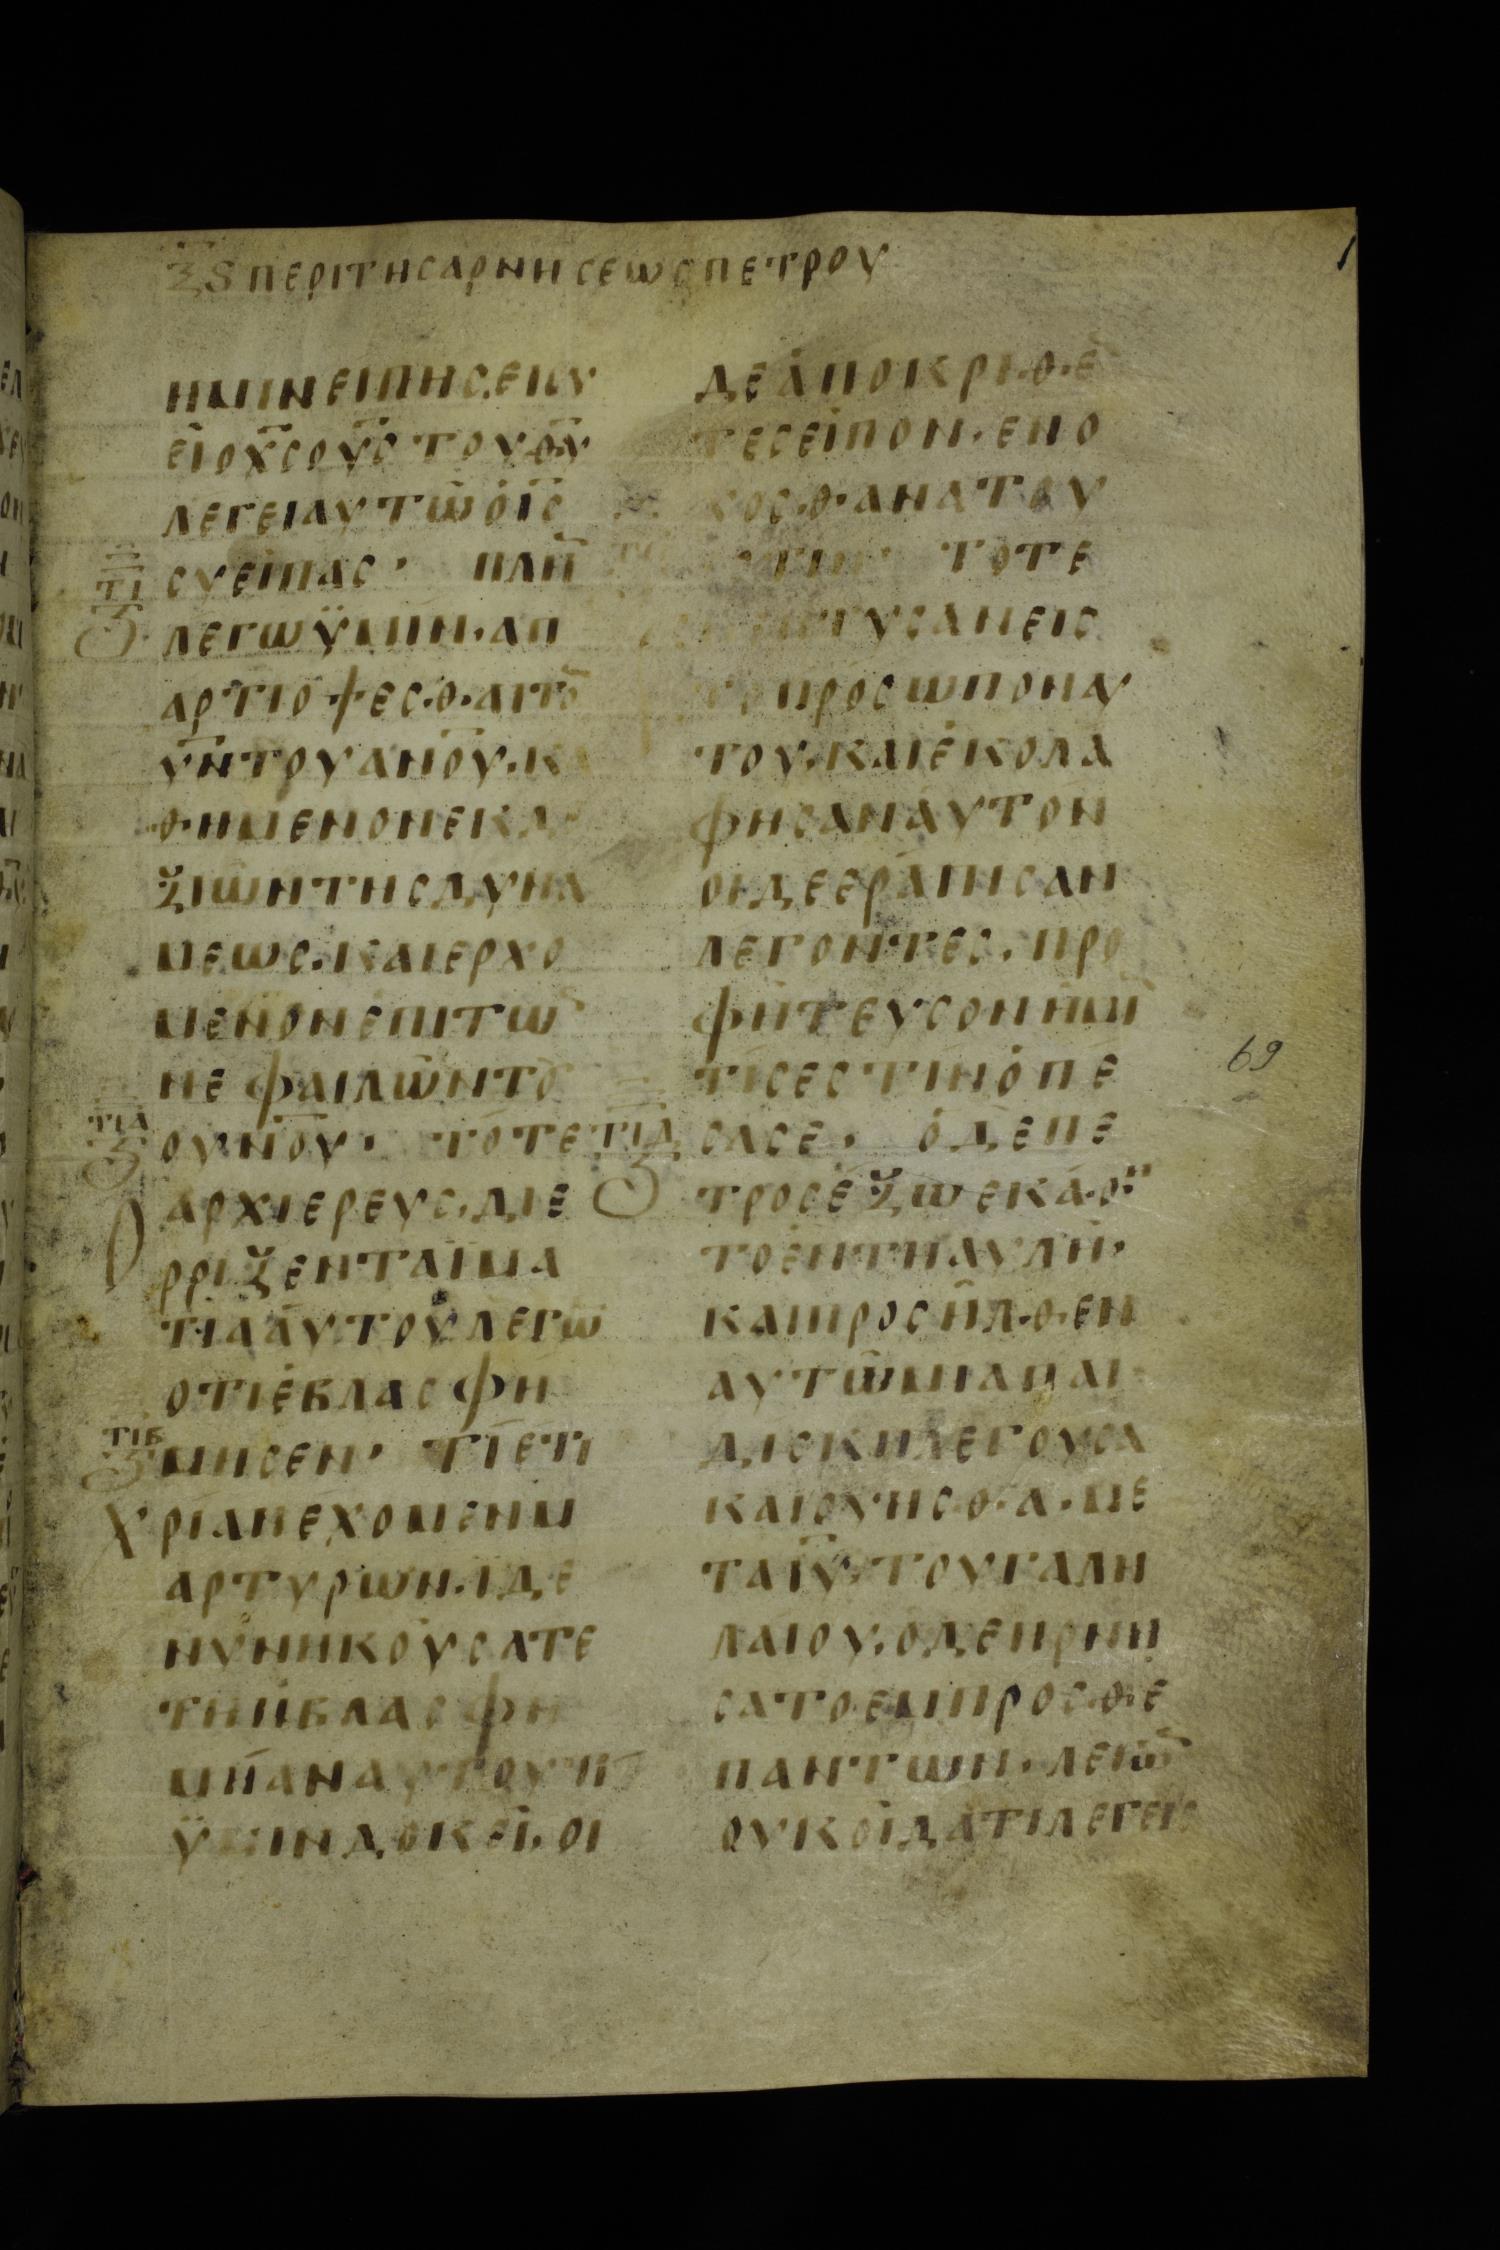 ξς περι της αρνησεως πετρου
ημιν ειπης ει ϲυ
ει ο χ̅ς ο υ̅ς του θ̅υ
λεγει αυτω ο ι̅ς
ϲυ ειπας · πλη̅
τι
ζ
λεγω ϋμιν · απ
αρτι οψεσθαι το̅
υ̅ν του ανο̅υ · κα
θημενον εκ δε
ξιων της δυνα
μεως · και ερχο
μενον επι τω̅
νεφαιλων το̅
ουνο̅υ · τοτε
τια
ζ
ο αρχιερευς · διε
ρριξεν τα ιμα
τια αυτου λεγω̅
οτι εβλασφη
μησεν · τι ετι
τιβ
ζ
χριαν εχομεν μ
αρτυρων · ιδε
νυν ηκουσατε
την βλασφη
μιαν αυτου τι
ϋμιν δοκει · οι
δε αποκριθε̅
τες ειπον · ενο
χος θανατου
εστιν · τοτε
υσαν εις
το προσωπον αυ
του · και εκολα
φησαν αυτον
οι δε εραπησαν
λεγοντες · προ
φητευσον ημι̅
τις εστιν ο πε
σας σε · ο δε πε
τιδ
ζ
τρος εξω εκαθη
το εν τη αυλη ·
και προσηλθεν
αυτω μια παι
δισκη λεγουσα
και συ ησθα · με
τα ι̅υ του γαλη
λαιου · ο δε ηρνη
σατο εμπροσθε
παντων · λεγω̅
ουκ οιδα τι λεγεις
69